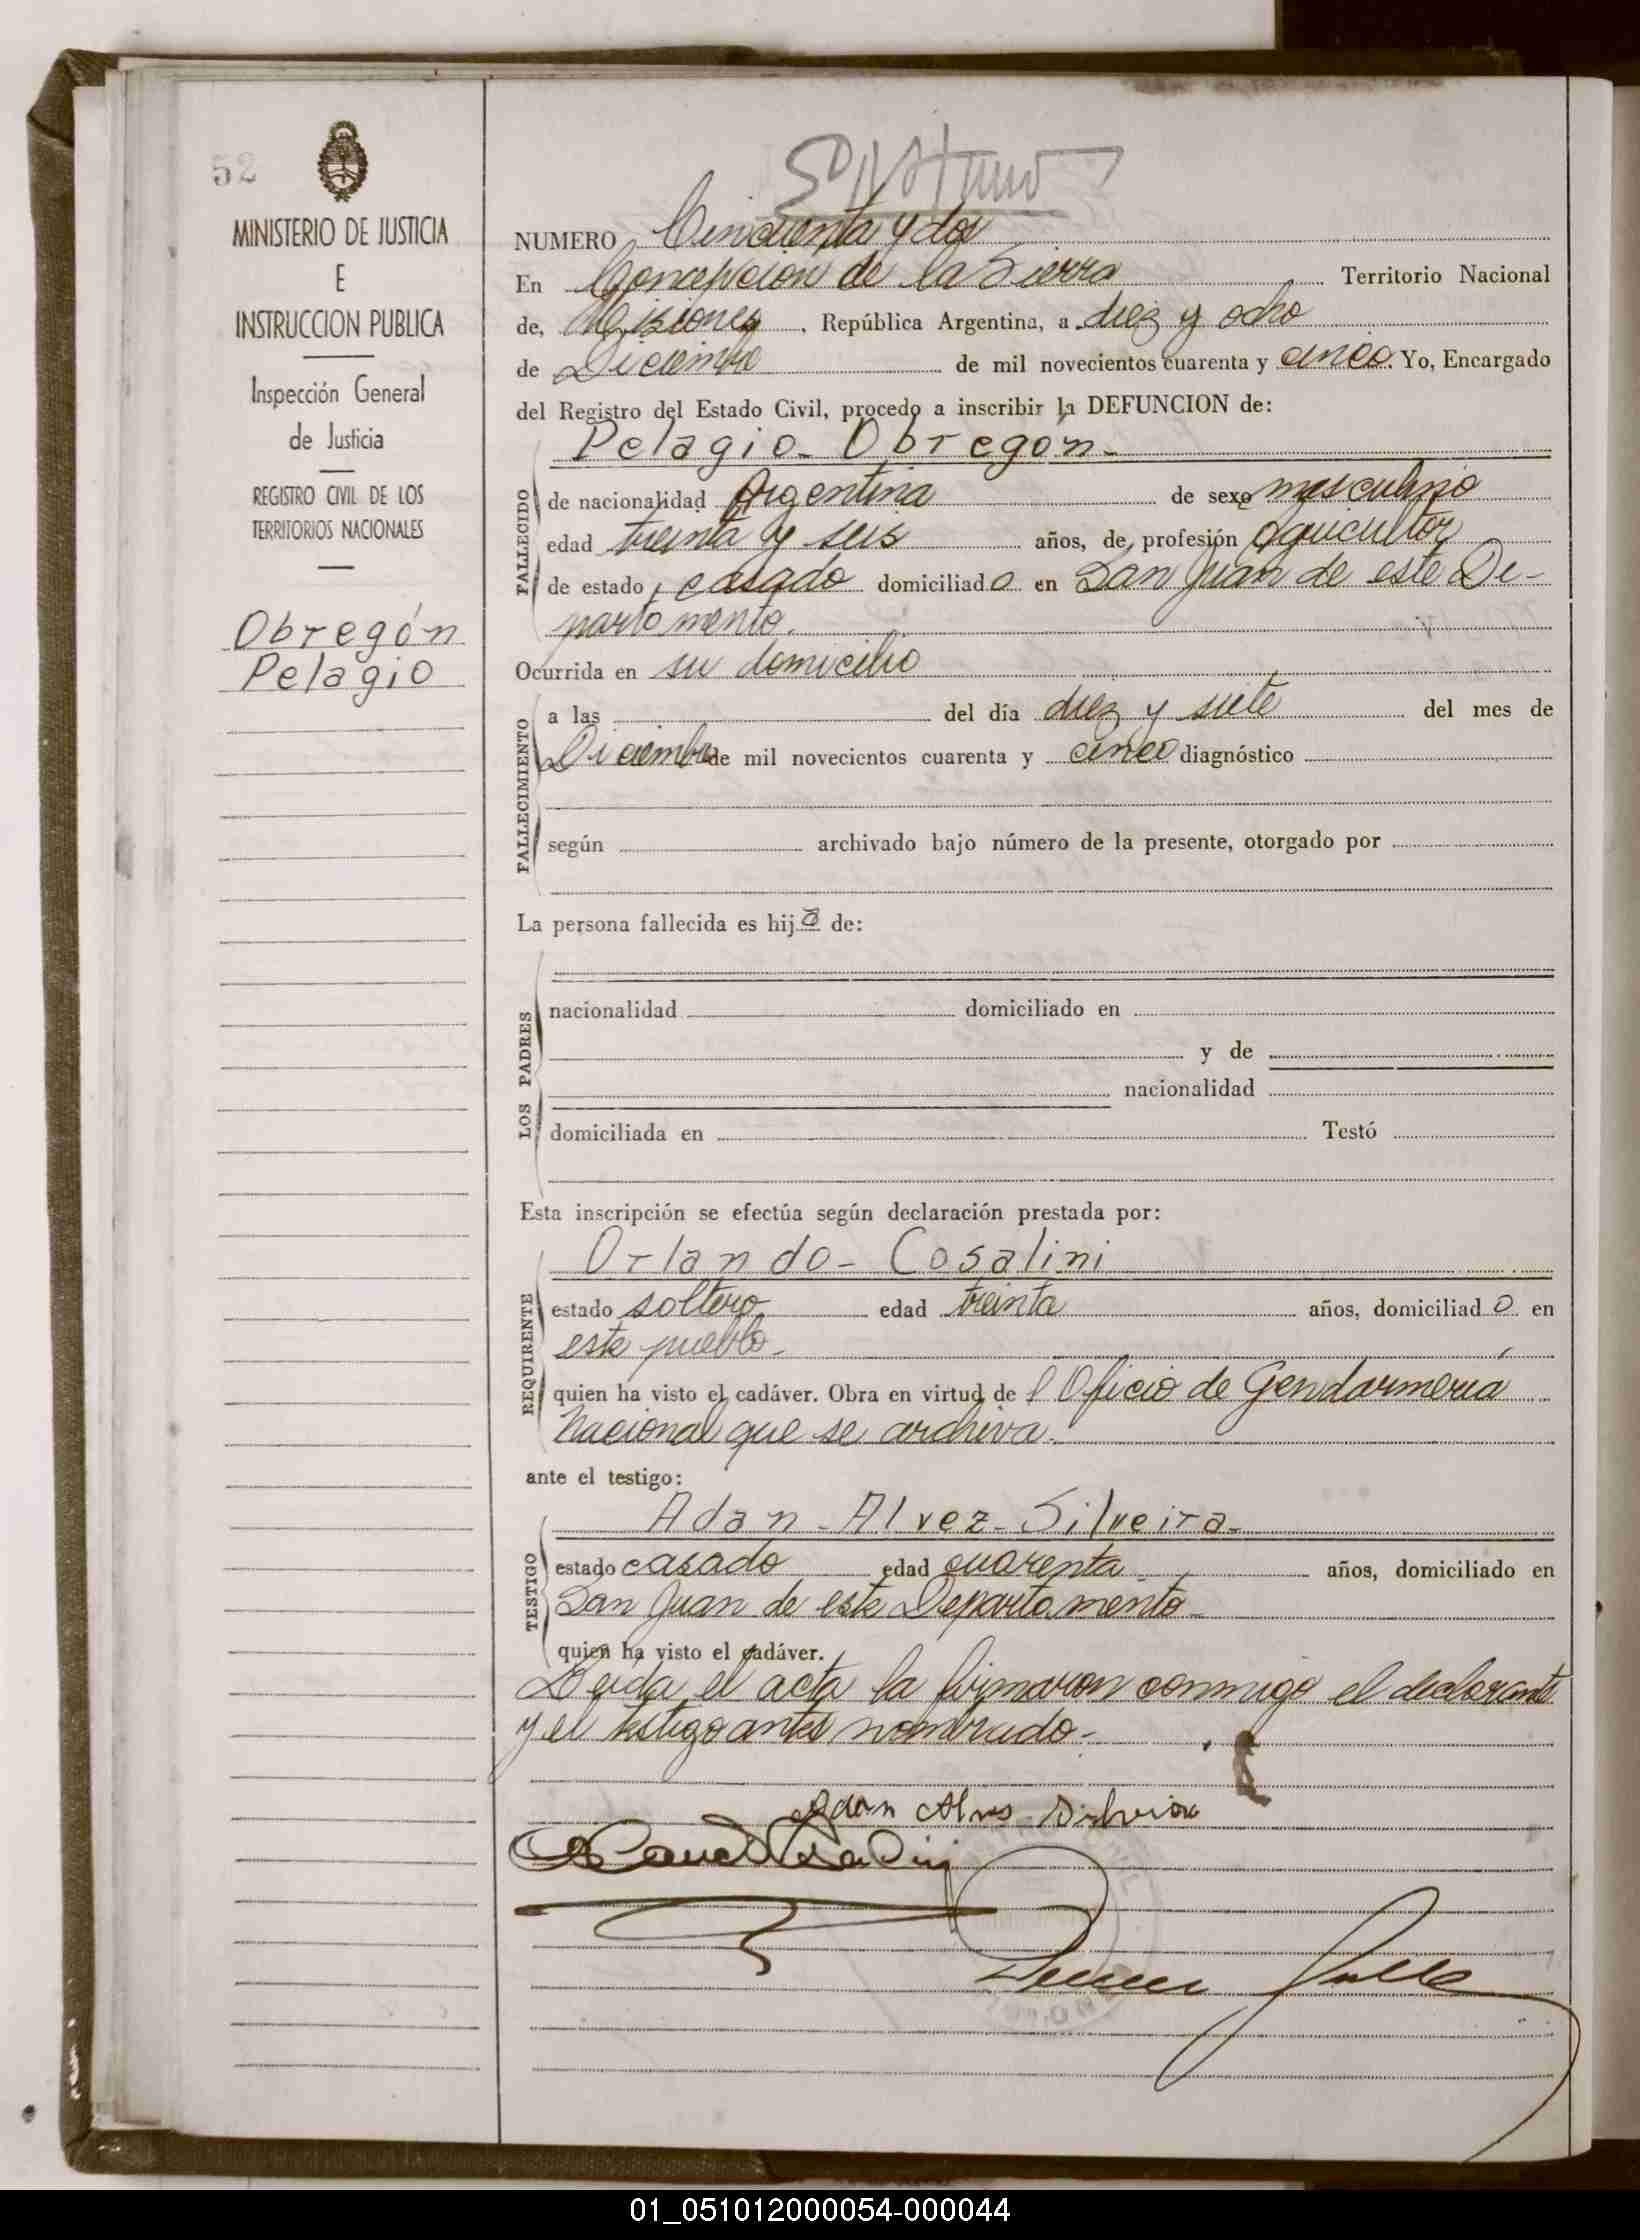 52
MINISTERIO DE JUSTICIA
E
INSTRUCCION PUBLICA
Inspección General
de Justicia
REGISTRO CIVIL DE LOS
TERRITORIOS NACIONALES
Obregón
Pelagio
NUMERO Cincuenta y dos
En Concepcion de la Sierra Territorio Nacional
de, Misiones, República Argentina, a diez y ocho
de Diciembre de mil novecientos cuarenta y cinco. Yo, Encargado
del Registro del Estado Civil, procedo a inscribir la DEFUNCION de:
Pelagio - Obregón -
FALLECIDO
de nacionalidad Argentina de sexo masculino
edad treinta y seis años, de profesión agricultor
de estado casado domiciliado en San Juan de este De-
partamento.
Ocurrida en su domicilio
FALLECIMIENTO
a las del día diez y siete del mes de
Diciembre de mil novecientos cuarenta y cinco diagnóstico
según archivado bajo número de la presente, otorgado por
La persona fallecida es hijo de:
LOS PADRES
nacionalidad domiciliado en
y de
nacionalidad
domiciliada en Testó
Esta inscripción se efectúa según declaración prestada por:
Orlando - Cosalini
REQUIRENTE
estado soltero edad treinta años, domiciliado en
este pueblo -
quien ha visto el cadáver. Obra en virtud de l Oficio de Gendarmería
Nacional que se archiva.
ante el testigo:
Adan - Alvez - Silveira -
TESTIGO
estado casado edad cuarenta años, domiciliado en
San Juan de este Departamento -
quien ha visto el cadáver.
Leida el acta la firmaron conmigo el declarante
y el testigo antes nombrado -
Adan Alves Silveira
01_051012000054-000044